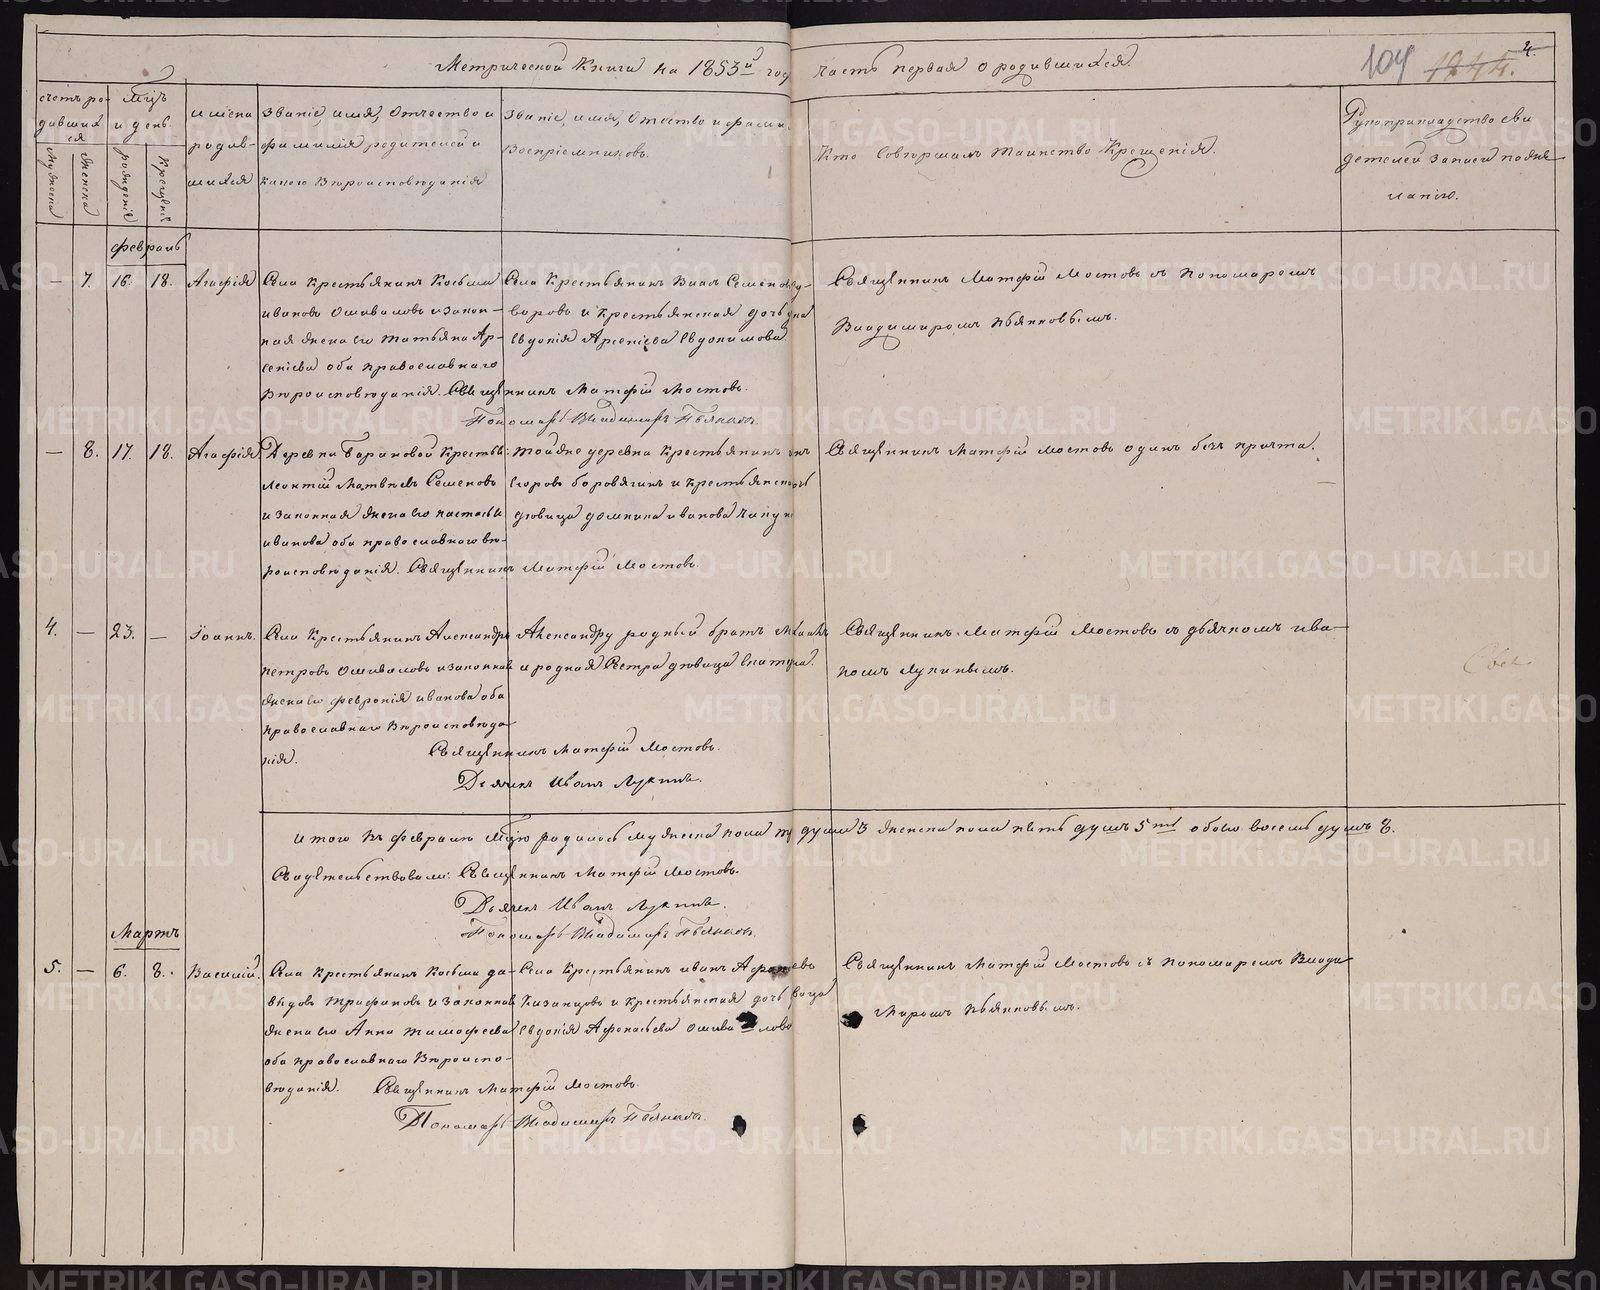 Метрической Книги на 1853й годъ часть первая о родившихся.
104 1244. 4.
счетъ ро-
дивших
ся
Мужеска
Женска
Мцъ
и день.
рождения
крещенія
имена
родив-
шихся
Званіе, имя, Отчество и
фамилія родителей и
какого Вѣроисповѣданія
Званіе, имя, Отчество и фамил.
Воспріемниковъ.
Кто Совершалъ Таинство Крещенія.
Рукоприкладство сви
детелей записи по же-
ланію.
Февраль
— 7. 16. 18. Агафія
Села Крестьянинъ Косьма
Ивановъ Ошиваловъ и закон-
ная жена его Татьяна Ар-
сеніева оба православнаго
Вѣроисповѣданія. Священникъ Матфій Мостовъ.
Пономарь Владимиръ Пьянковъ.
Села Крестьянинъ Семенов
варовъ и Крестьянская дочь
Евдокія Арсеніева Евдокимова
Священникъ Матфій Мостовъ съ Пономаремъ
Владимиромъ Пьянковымъ.
— 8. 17. 18. Агафія
Деревни Барановой Крестьян:
Леонтій Матвѣевъ Семеновъ
и Законная жена его Настасья
Иванова оба православного вѣ-
роисповѣданія. Священникъ Матфій Мостовъ.
той же деревни Крестьянинъ
Егоровъ Боровягинъ и Крестьянская
дѣвица Домнина Иванова
Священникъ Матфій Мостовъ одинъ безъ причта.
4. — 23. — Іоаннъ.
Села Крестьянинъ Александръ
Петровъ Ошиваловъ и законная
жена его Февронія Иванова оба
православнаго Вѣроисповѣда
нія.
Священникъ Матфій Мостовъ.
Дьячекъ Иванъ Лукинъ.
Александру родный братъ
и родная Сестра дѣвица Екатери
Священникъ Матфій Мостовъ съ дьячкомъ Ива-
номъ Лукинымъ.
итого въ февралѣ мцѣ родилось мужеска пола три души 3 женска пола пять душъ 5ть обоего восемь душъ 8.
Свидѣтельствовали: Священникъ Матфій Мостовъ.
Дьячекъ Иванъ Лукинъ.
Пономарь Владимиръ Пьянковъ.
Мартъ
5. — 6. 8. Василій.
Села Крестьянинъ Косьма Да-
выдовъ Трифановъ и законная
жена его Анна Тимофеева
оба православнаго Вѣроиспо-
вѣданія. Священникъ Матфій Мостовъ.
Пономарь Владимиръ Пьянковъ.
Села Крестьянинъ Иванъ
Казанцовъ и Крестьянская дочь
Евдокія Афонасьева Ошивалово
Священникъ Матфій Мостовъ съ пономаремъ Влади-
миромъ Пьянковымъ.
METRIKI.GASO-URAL.RU